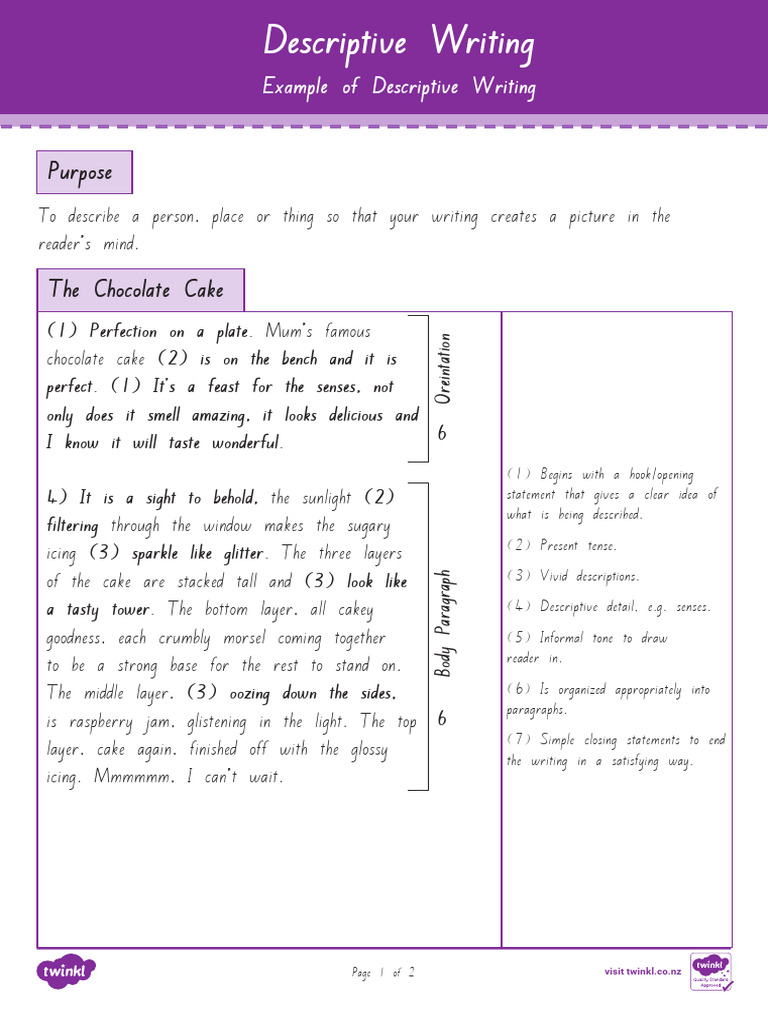 Descriptive Writing
Example of Descriptive Writing
Purpose
To describe a person, place or thing so that your writing creates a picture in the
reader's mind.
The Chocolate Cake
(1) Perfection on a plate. Mum's famous
chocolate cake (2) is on the bench and it is
perfect. (1) It's a feast for the senses, not
only does it smell amazing, it looks delicious and
I know it will taste wonderful.
Oreintation
6
4) It is a sight to behold, the sunlight (2)
filtering through the window makes the sugary
icing (3) sparkle like glitter. The three layers
of the cake are stacked tall and (3) look like
a tasty tower. The bottom layer, all cakey
goodness, each crumbly morsel coming together
to be a strong base for the rest to stand on.
The middle layer, (3) oozing down the sides,
is raspberry jam, glistening in the light. The top
layer, cake again, finished off with the glossy
icing. Mmmmmm, I can't wait.
Body Paragraph
6
(1) Begins with a hook/opening
statement that gives a clear idea of
what is being described.
(2) Present tense.
(3) Vivid descriptions.
(4) Descriptive detail, e.g. senses.
(5) Informal tone to draw
reader in.
(6) Is organized appropriately into
paragraphs.
(7) Simple closing statements to end
the writing in a satisfying way.
twinkl
Page 1 of 2
visit twinkl.co.nz
twinkl
Quality Standard
Approved